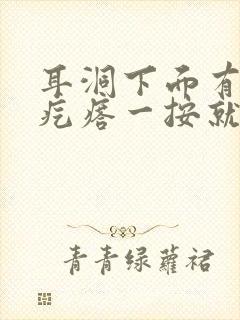 耳洞下面有
疙瘩一按就
青青绿蘿裙